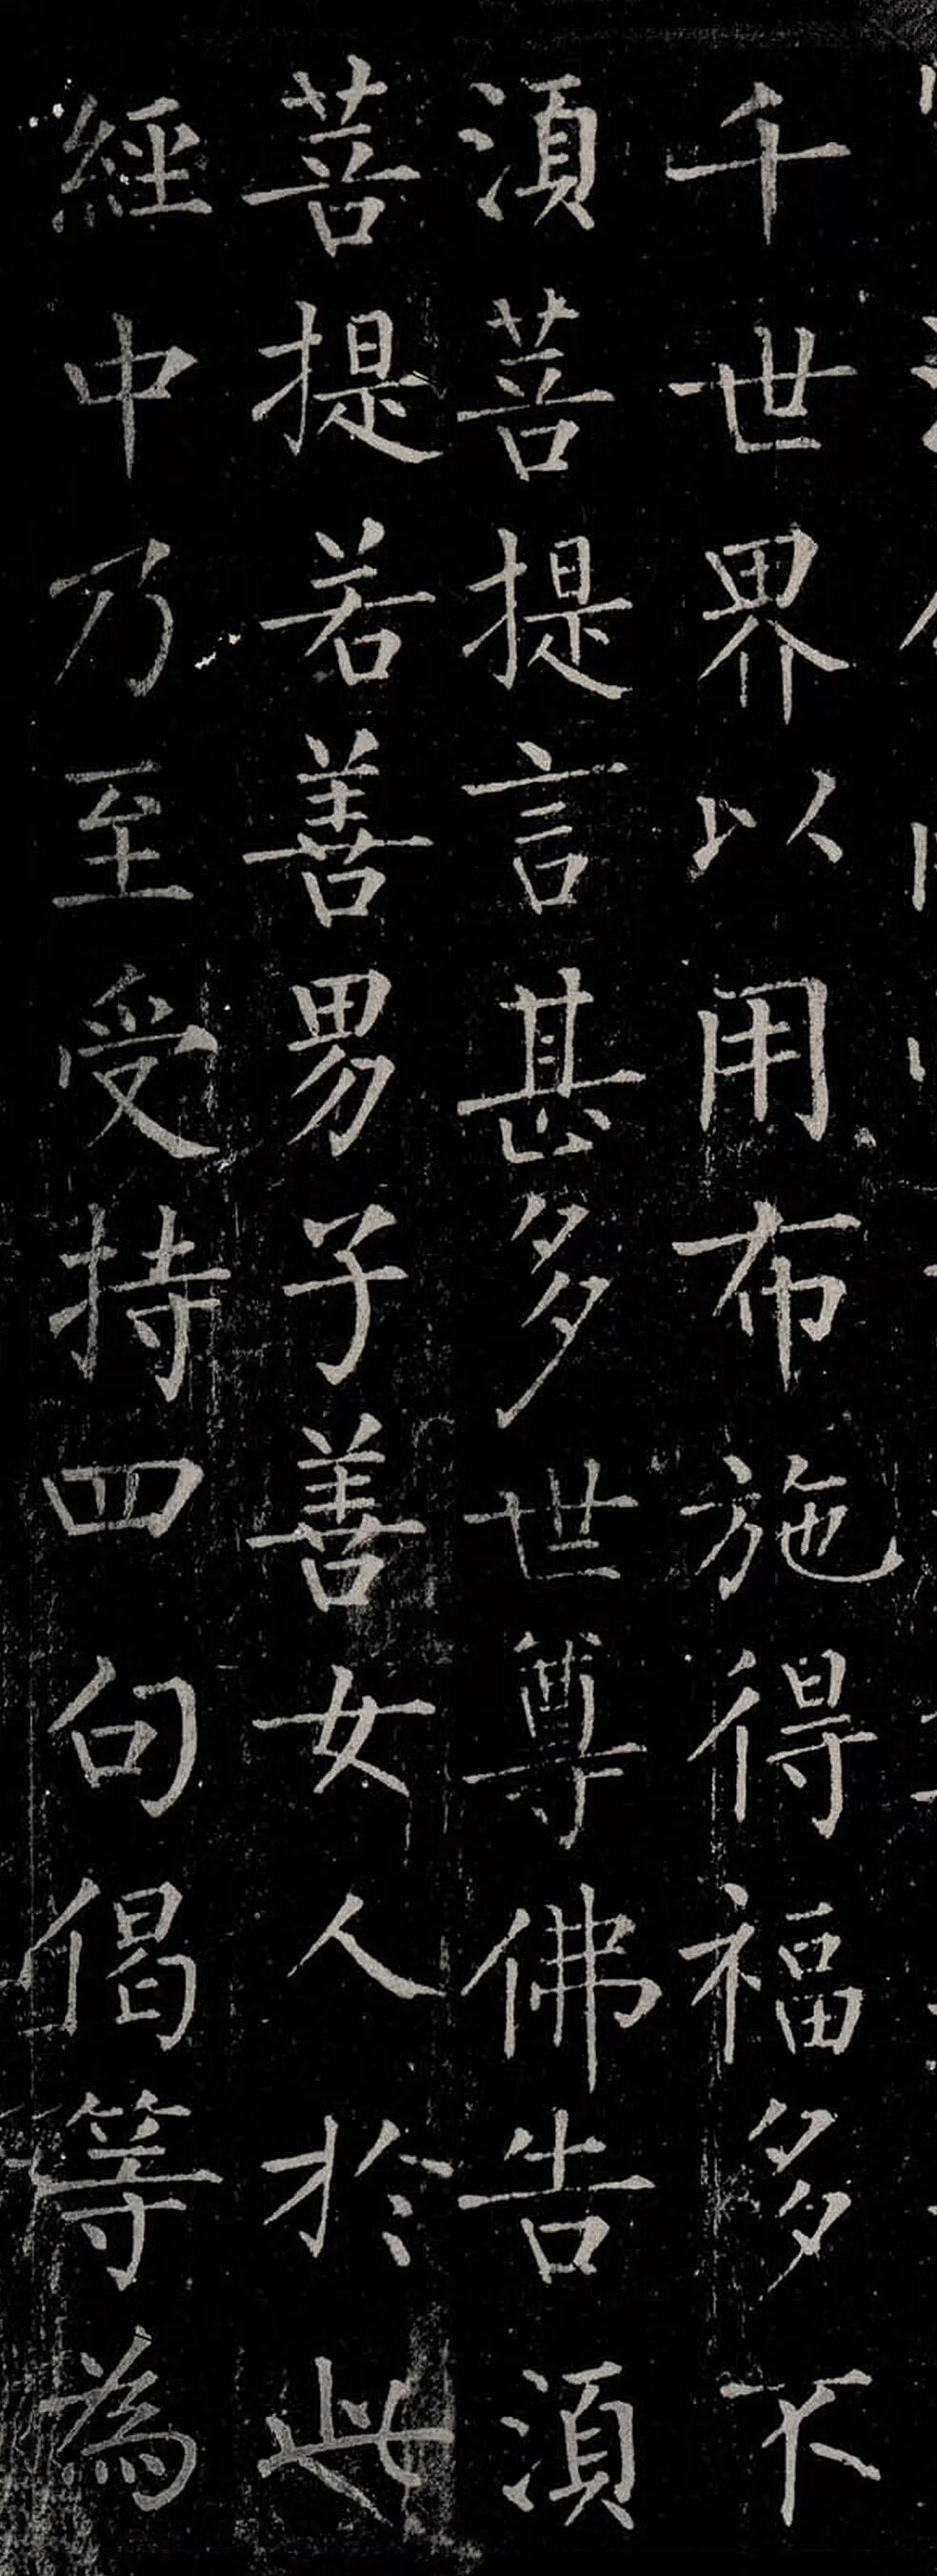 千世界以用布施得福多不
湏菩提言甚多世尊佛告湏
菩提若善男子善女人於此
經中乃至受持四句偈等為